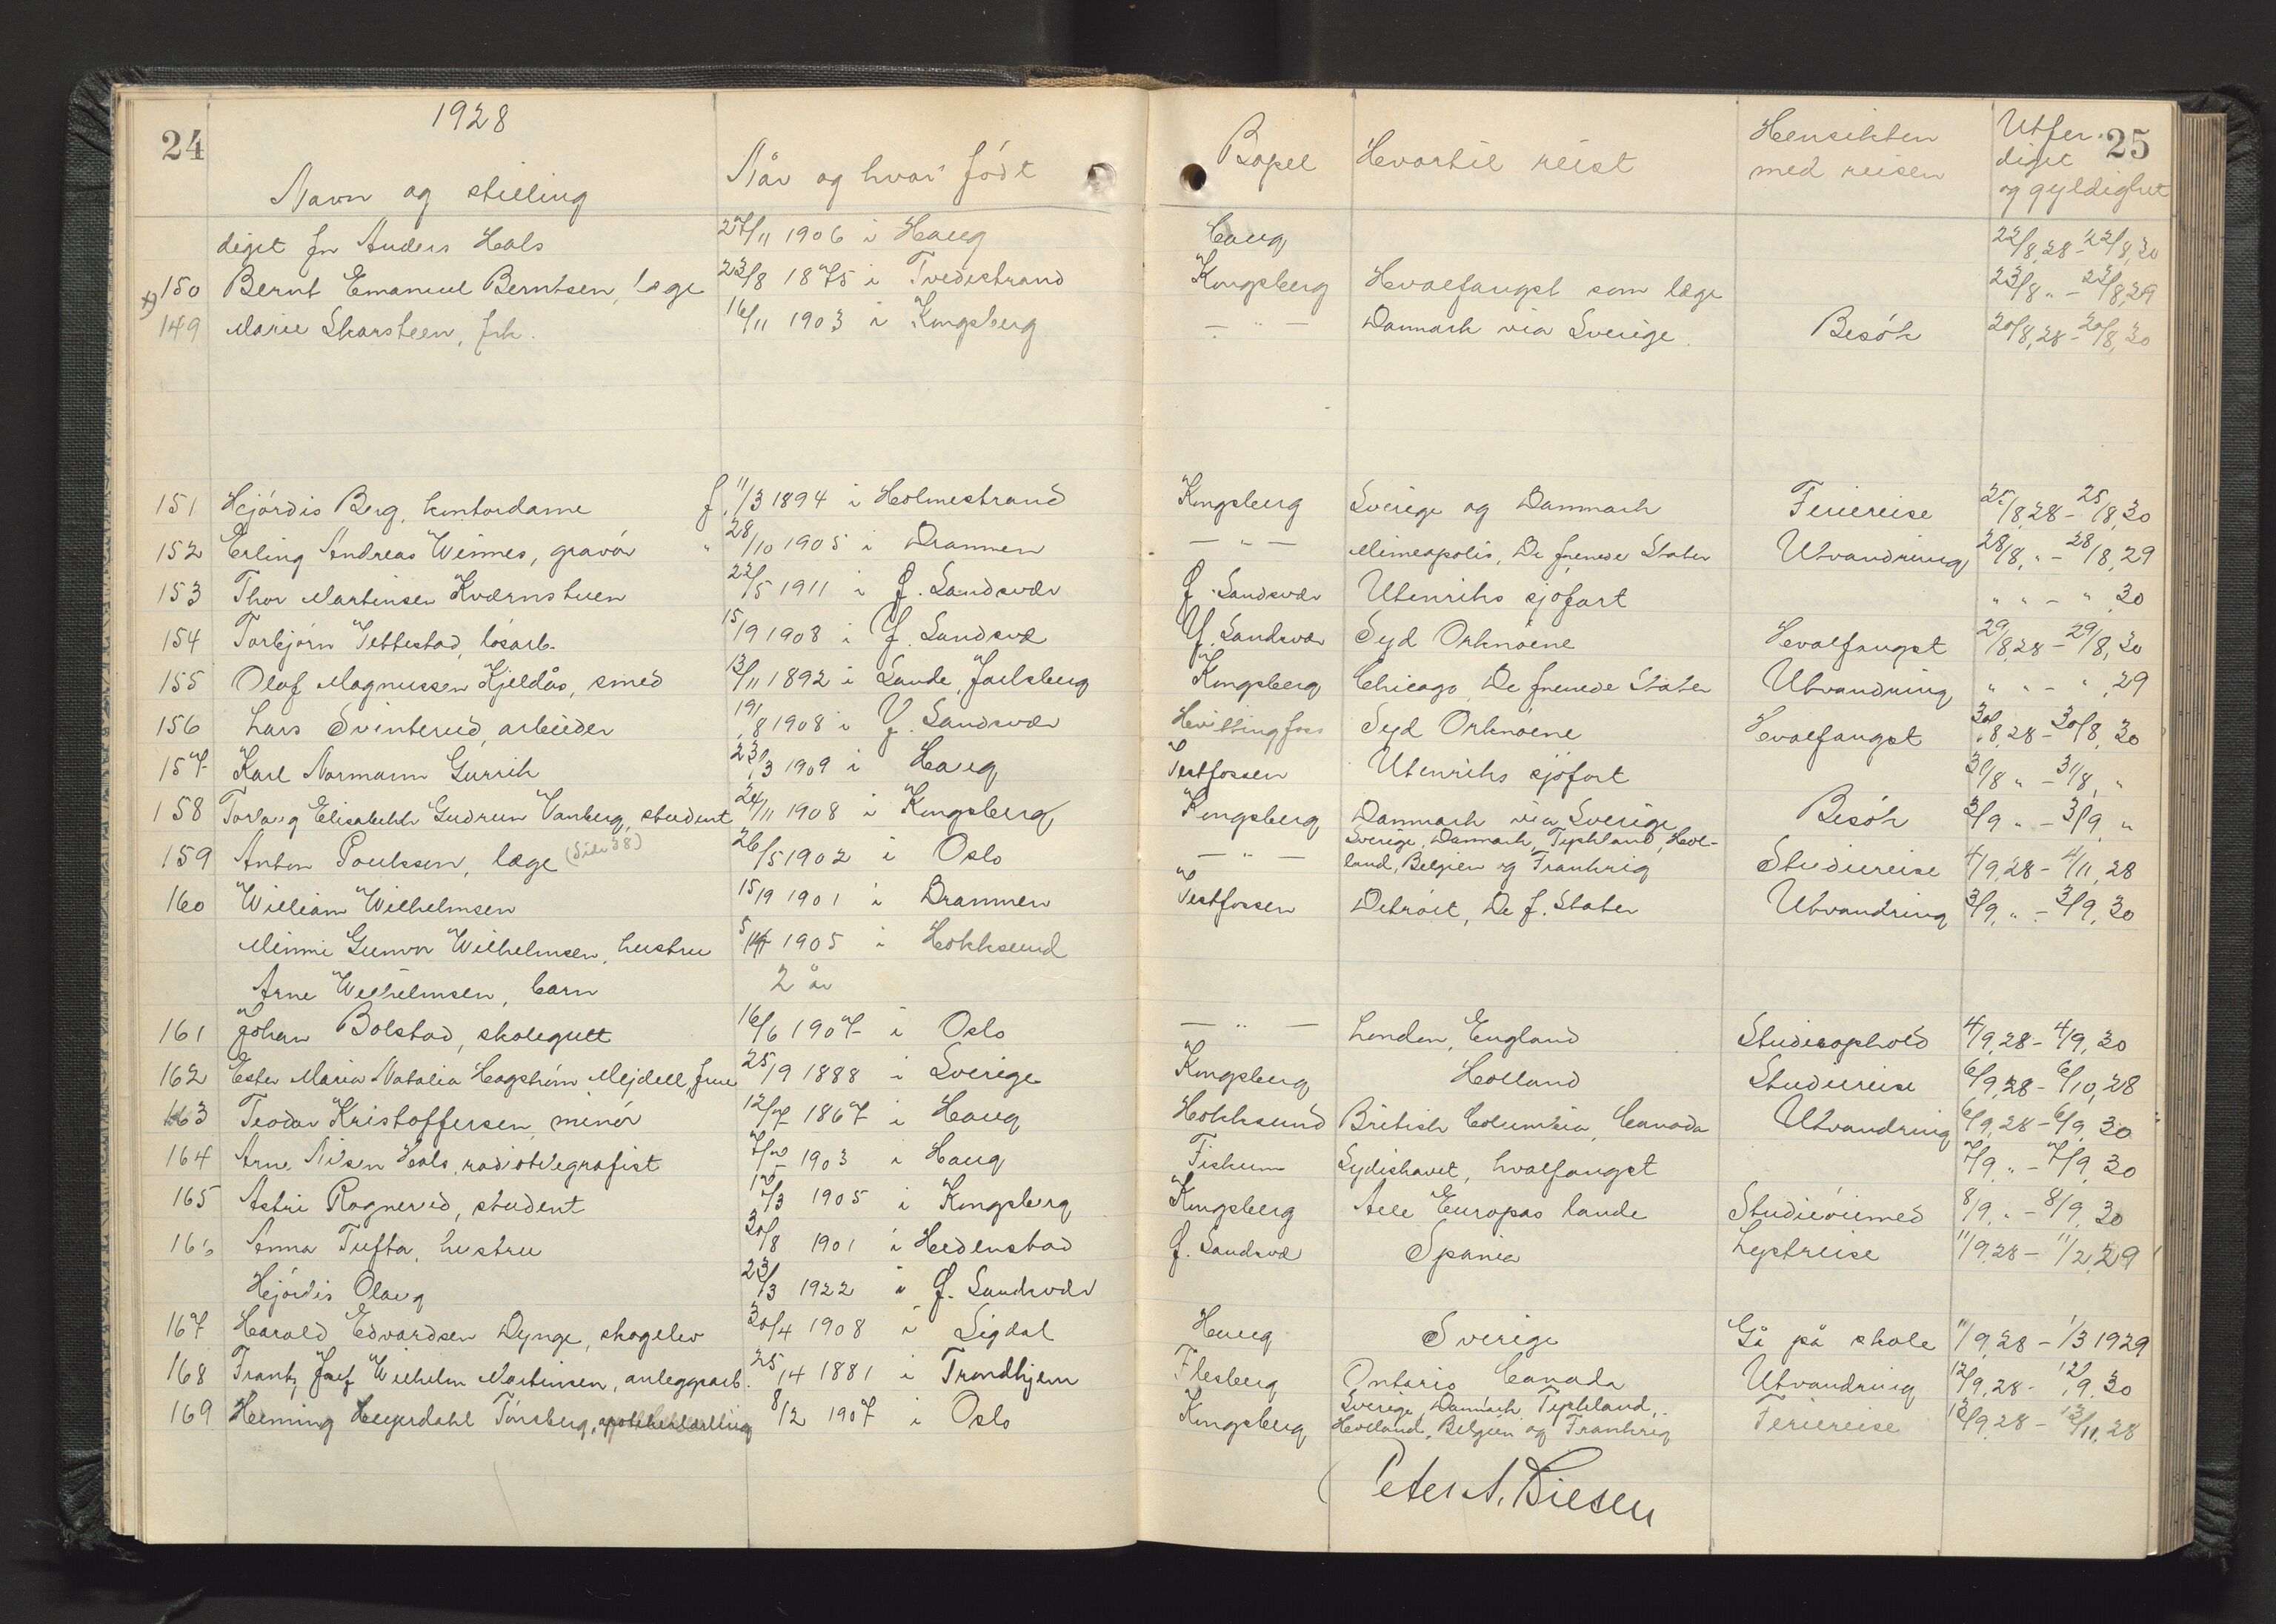 24
1928
Navn og stilling
Når og hvor født
Bopel
Hvortil reist
Hensikten med reisen
Utferdiget og gyldighet
25
diget fr Anders Hals 27/11 1906 i Haug Haug 22/8,28 - 22/8,30
x) 150 Bernt Emanuel Berntsen, læge 23/8 1875 i Tvedestrand Kongsberg Hvalfangst som læge 23/8 " - 23/8,29
149 Marie Skarsteen, frk. 16/11 1903 i Kongsberg — " — Danmark via Sverige. Besøk 20/8,28 - 20/8,30
151 Hjørdis Berg, kontordame f. 11/3 1894 i Holmestrand Kongsberg Sverige og Danmark Feriereise 25/8,28 - 25/8,30
152 Erling Andreas Winnes, gravør " 28/10 1905 i Drammen — " — Mineapolis, De forenede Stater Utvandring 28/8, " - 28/8,29
153 Thor Martinsen Kværnstuen 22/5 1911 i Ø. Sandsvær Ø. Sandsvær Utenriks sjøfart " " - " 30
154 Torbjørn Jettestad, løsarb. 15/9 1908 i Y. Sandsvæ Y. Sandsvær Syd Orknøene Hvalfangst 29/8,28 - 29/8,30
155 Olaf Magnussen Kjeldås, smed 13/11 1892 i Sande, Jarlsberg Kongsberg Chicago De forenede Stater Utvandring " " - " ,29
156 Lars Svinterud, arbeider 19/8 1908 i Y. Sandsvær Hvittingfoss Syd Orknøene Hvalfangst 30/8,28 - 30/8,30
157 Karl Normann Gurrik 23/3 1909 i Haug Vestfossen Utenriks sjøfart 31/8 " - 31/8, "
158 Torlaug Elisabeth Gudrun Vanberg, student 24/11 1908 i Kongsberg Kongsberg Danmark via Sverige Besøk 3/9 " - 3/9 "
159 Anton Poulssen, læge (Side 38) 26/5 1902 i Oslo — " — Sverige, Danmark, Tyskland, Holland, Belgien og Frankrig Studiereise 4/9,28 - 4/11,28
160 William Wilhelmsen 15/9 1901 i Drammen Vestfossen Detroit, De f. Stater Utvandring 3/9, " - 3/9,30
Minni Gunvor Wilhelmsen, hustru 1905 i Hokksund
Arne Wilhelmsen, barn 2 år
161 Johan Bolstad, skolegutt 16/6 1907 i Oslo — " — London, England Studieophold 4/9,28 - 4/9,30
162 Ester Maria Natalia Hagstrøm Mejdell, frue 25/9 1888 i Sverige Kongsberg Holland Studiereise 6/9,28 - 6/10,28
163 Teodor Kristoffersen, minør 12/7 1867 i Haug Hokksund British Columbia, Canada Utvandring 6/9,28 - 6/9,30
164 Arne Nilsen Hals, radiotelegrafist 1903 i Haug Fiskum Sydishavet, hvalfangst 7/9, " - 7/9,30
165 Astri Ragnerud, student 1905 i Kongsberg Kongsberg Alle Europas lande Studieøiemed 8/9, " - 8/9,30
166 Anna Tufta, hustru 30/8 1901 i Hedenstad Ø. Sandsvæ Spania Lystreise 11/9,28 - 11/2,29
Hjørdis Olaug 23/3 1922 i Ø. Sandsvær
167 Harald Edvardsen Dynge, skogelev 30/4 1908 i Sigdal Haug Sverige Gå på skole 11/9,28 - 1/3 1929
168 Frantz Josef Wilhelm Martinsen, anleggsarb. 25/4 1881 i Trondhjem Flesberg Ontario Canada Utvandring 12/9,28 - 12/9,30
169 Henning Heyerdahl Tønsberg, 8/2 1907 i Oslo Kongsberg Sverige, Danmark Tyskland, Holland, Belgien og Frankrig Feriereise 12/9,28 - 12/11,28
Peter A.